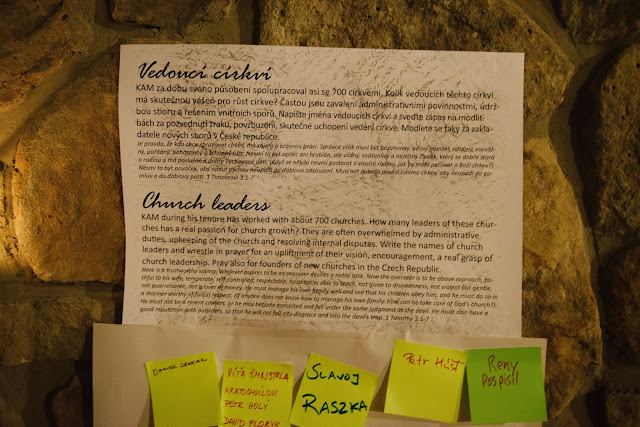 Vedoucí církví
KAM za dobu svého působení spolupracoval asi se 700 církvemi. Kolik vedoucích těchto církví
má skutečnou vášeň pro růst církve? Častou jsou zavalení administrativními povinnostmi, údrž-
bou sboru a řešením vnitřních sporů. Napište jména vedoucích církví a sveďte zápas na modlit-
bách za pozvednutí zraku, povzbuzení, skutečné uchopení vedení církve. Modlete se taky za zakla-
datele nových sborů v České republice.
Je pravda, že kdo chce spravovat církev,
a rodinu a má poslušné a dobře vychované
Nesmí to být nováček, aby
mluv a do ďáblovy pasti. 1 Timoteovi 3:1-7
Church leaders
KAM during his tenure has worked with about 700 churches. How many leaders of these chur-
ches has a real passion for church growth? They are often overwhelmed by administrative
duties, upkeeping of the church and resolving internal disputes. Write the names of church
leaders and wrestle in prayer for an upliftment of their vision, encouragement, a real grasp of
church leadership. Pray also for founders of new churches in the Czech Republic.
Here is a trustworthy saying: Whoever aspires to be an overseer desires a noble task. Now the overseer is to be above reproach, fai-
thful to his wife, temperate, self-controlled, respectable, hospitable, able to teach, not given to drunkenness, not violent but gentle,
not quarrelsome, not a lover of money. He must manage his own family well and see that his children obey him, and he must do so in
a manner worthy of full(a) respect. (If anyone does not know how to manage his own family, how can he take care of God's church?)
He must not be a recent convert, or he may become conceited and fall under the same judgment as the devil. He must also have a
good reputation with outsiders, so that he will not fall into disgrace and into the devil's trap. 1 Timothy 3:1-7
VÍŤA ŠMAJSTRLA
KRATOCHVILOVI
PETR HOLÝ
DAVID FLORYK
SLAVOJ
RASZKA
Petr Húšť
Reny
Pospíšil